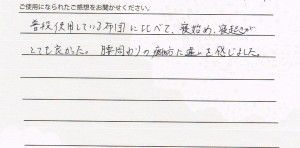 ご使用になられたご感想をお聞かせください。
普段使用している布団に比べて、寝始め、寝起きが
とても良かった。腰周りの疲方に違いを感じました。